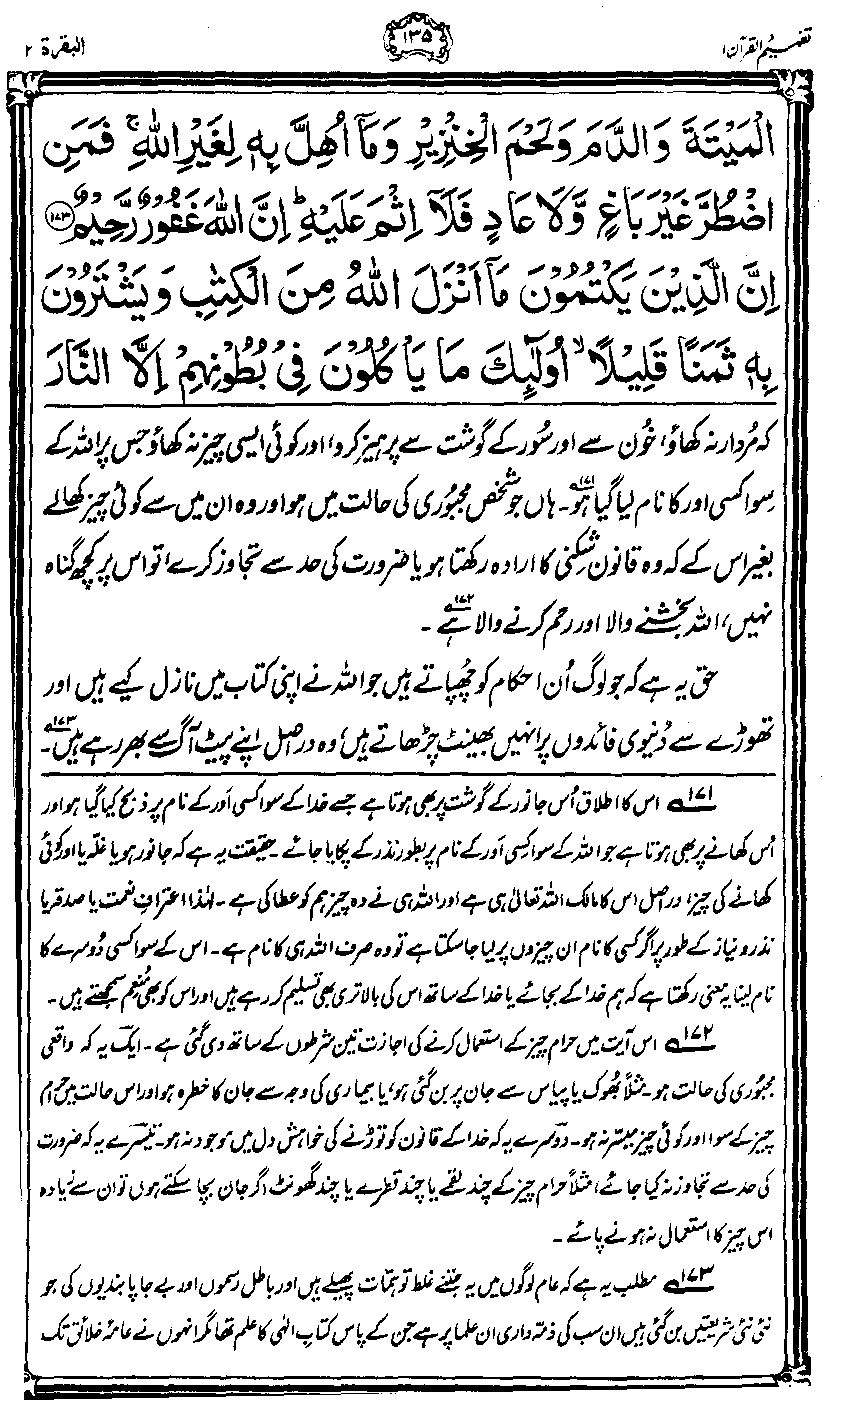 تفہیم القرآن ۱
۱۳۵
البقرۃ ۲
الْمَيْتَةَ وَالدَّمَ وَلَحْمَ الْخِنْزِيْرِ وَمَآ اُهِلَّ بِهٖ لِغَيْرِ اللّٰهِ ۚ فَمَنِ
اضْطُرَّ غَيْرَ بَاغٍ وَّلَا عَادٍ فَلَآ اِثْمَ عَلَيْهِ ؕ اِنَّ اللّٰهَ غَفُوْرٌ رَّحِيْمٌ ۝۱۷۳
اِنَّ الَّذِيْنَ يَكْتُمُوْنَ مَآ اَنْزَلَ اللّٰهُ مِنَ الْكِتٰبِ وَيَشْتَرُوْنَ
بِهٖ ثَمَنًا قَلِيْلًا ۙ اُولٰٓئِكَ مَا يَاْكُلُوْنَ فِيْ بُطُوْنِهِمْ اِلَّا النَّارَ
کہ مُردار نہ کھاؤ، خُون سے اور سُور کے گوشت سے پرہیز کرو، اور کوئی ایسی چیز نہ کھاؤ جس پر اللہ کے
سِوا کسی اور کا نام لیا گیا ہو۱۷۱۔ ہاں جو شخص مجبُوری کی حالت میں ہو اور وہ ان میں سے کوئی چیز کھالے
بغیر اس کے کہ وہ قانون شکنی کا ارادہ رکھتا ہو یا ضرورت کی حد سے تجاوز کرے، تو اس پر کچھ گناہ
نہیں، اللہ بخشنے والا اور رحم کرنے والا ہے۱۷۲۔
حق یہ ہے کہ جو لوگ اُن احکام کو چُھپاتے ہیں جو اللہ نے اپنی کتاب میں نازل کیے ہیں اور
تھوڑے سے دُنیوی فائدوں پر انہیں بھینٹ چڑھاتے ہیں، وہ دراصل اپنے پیٹ آگ سے بھر رہے ہیں۱۷۳۔
۱۷۱ اس کا اطلاق اُس جانور کے گوشت پر بھی ہوتا ہے جسے خدا کے سوا کسی اَور کے نام پر ذبح کیا گیا ہو اور
اُس کھانے پر بھی ہوتا ہے جو اللہ کے سوا کسی اَور کے نام پر بطور نذر کے پکایا جائے۔ حقیقت یہ ہے کہ جانور ہو یا غلّہ یا اور کوئی
کھانے کی چیز، دراصل اس کا مالک اللہ تعالیٰ ہی ہے اور اللہ ہی نے وہ چیز ہم کو عطا کی ہے۔ لہٰذا اعترافِ نعمت یا صدقہ یا
نذر و نیاز کے طور پر اگر کسی کا نام ان چیزوں پر لیا جاسکتا ہے تو وہ صرف اللہ ہی کا نام ہے۔ اس کے سوا کسی دُوسرے کا
نام لینا یہ معنی رکھتا ہے کہ ہم خدا کے بجائے یا خدا کے ساتھ اس کی بالاتری بھی تسلیم کر رہے ہیں اور اس کو بھی مُنعِم سمجھتے ہیں۔
۱۷۲ اس آیت میں حرام چیز کے استعمال کرنے کی اجازت تین شرطوں کے ساتھ دی گئی ہے۔ ایک یہ کہ واقعی
مجبُوری کی حالت ہو۔ مثلاً بُھوک یا پیاس سے جان پر بن گئی ہو، یا بیماری کی وجہ سے جان کا خطرہ ہو اور اس حالت میں حرام
چیز کے سوا اور کوئی چیز میسّر نہ ہو۔ دوسرے یہ کہ خدا کے قانون کو توڑنے کی خواہش دل میں موجود نہ ہو۔ تیسرے یہ کہ ضرورت
کی حد سے تجاوز نہ کیا جائے، مثلاً حرام چیز کے چند لقمے یا چند قطرے یا چند گھونٹ اگر جان بچا سکتے ہوں تو ان سے زیادہ
اس چیز کا استعمال نہ ہونے پائے۔
۱۷۳ مطلب یہ ہے کہ عام لوگوں میں یہ جتنے غلط توہّمات پھیلے ہیں اور باطل رسموں اور بے جا پابندیوں کی جو
نئی نئی شریعتیں بن گئی ہیں ان سب کی ذمّہ داری ان علما پر ہے جن کے پاس کتابِ الٰہی کا علم تھا مگر انہوں نے عامۂ خلائق تک